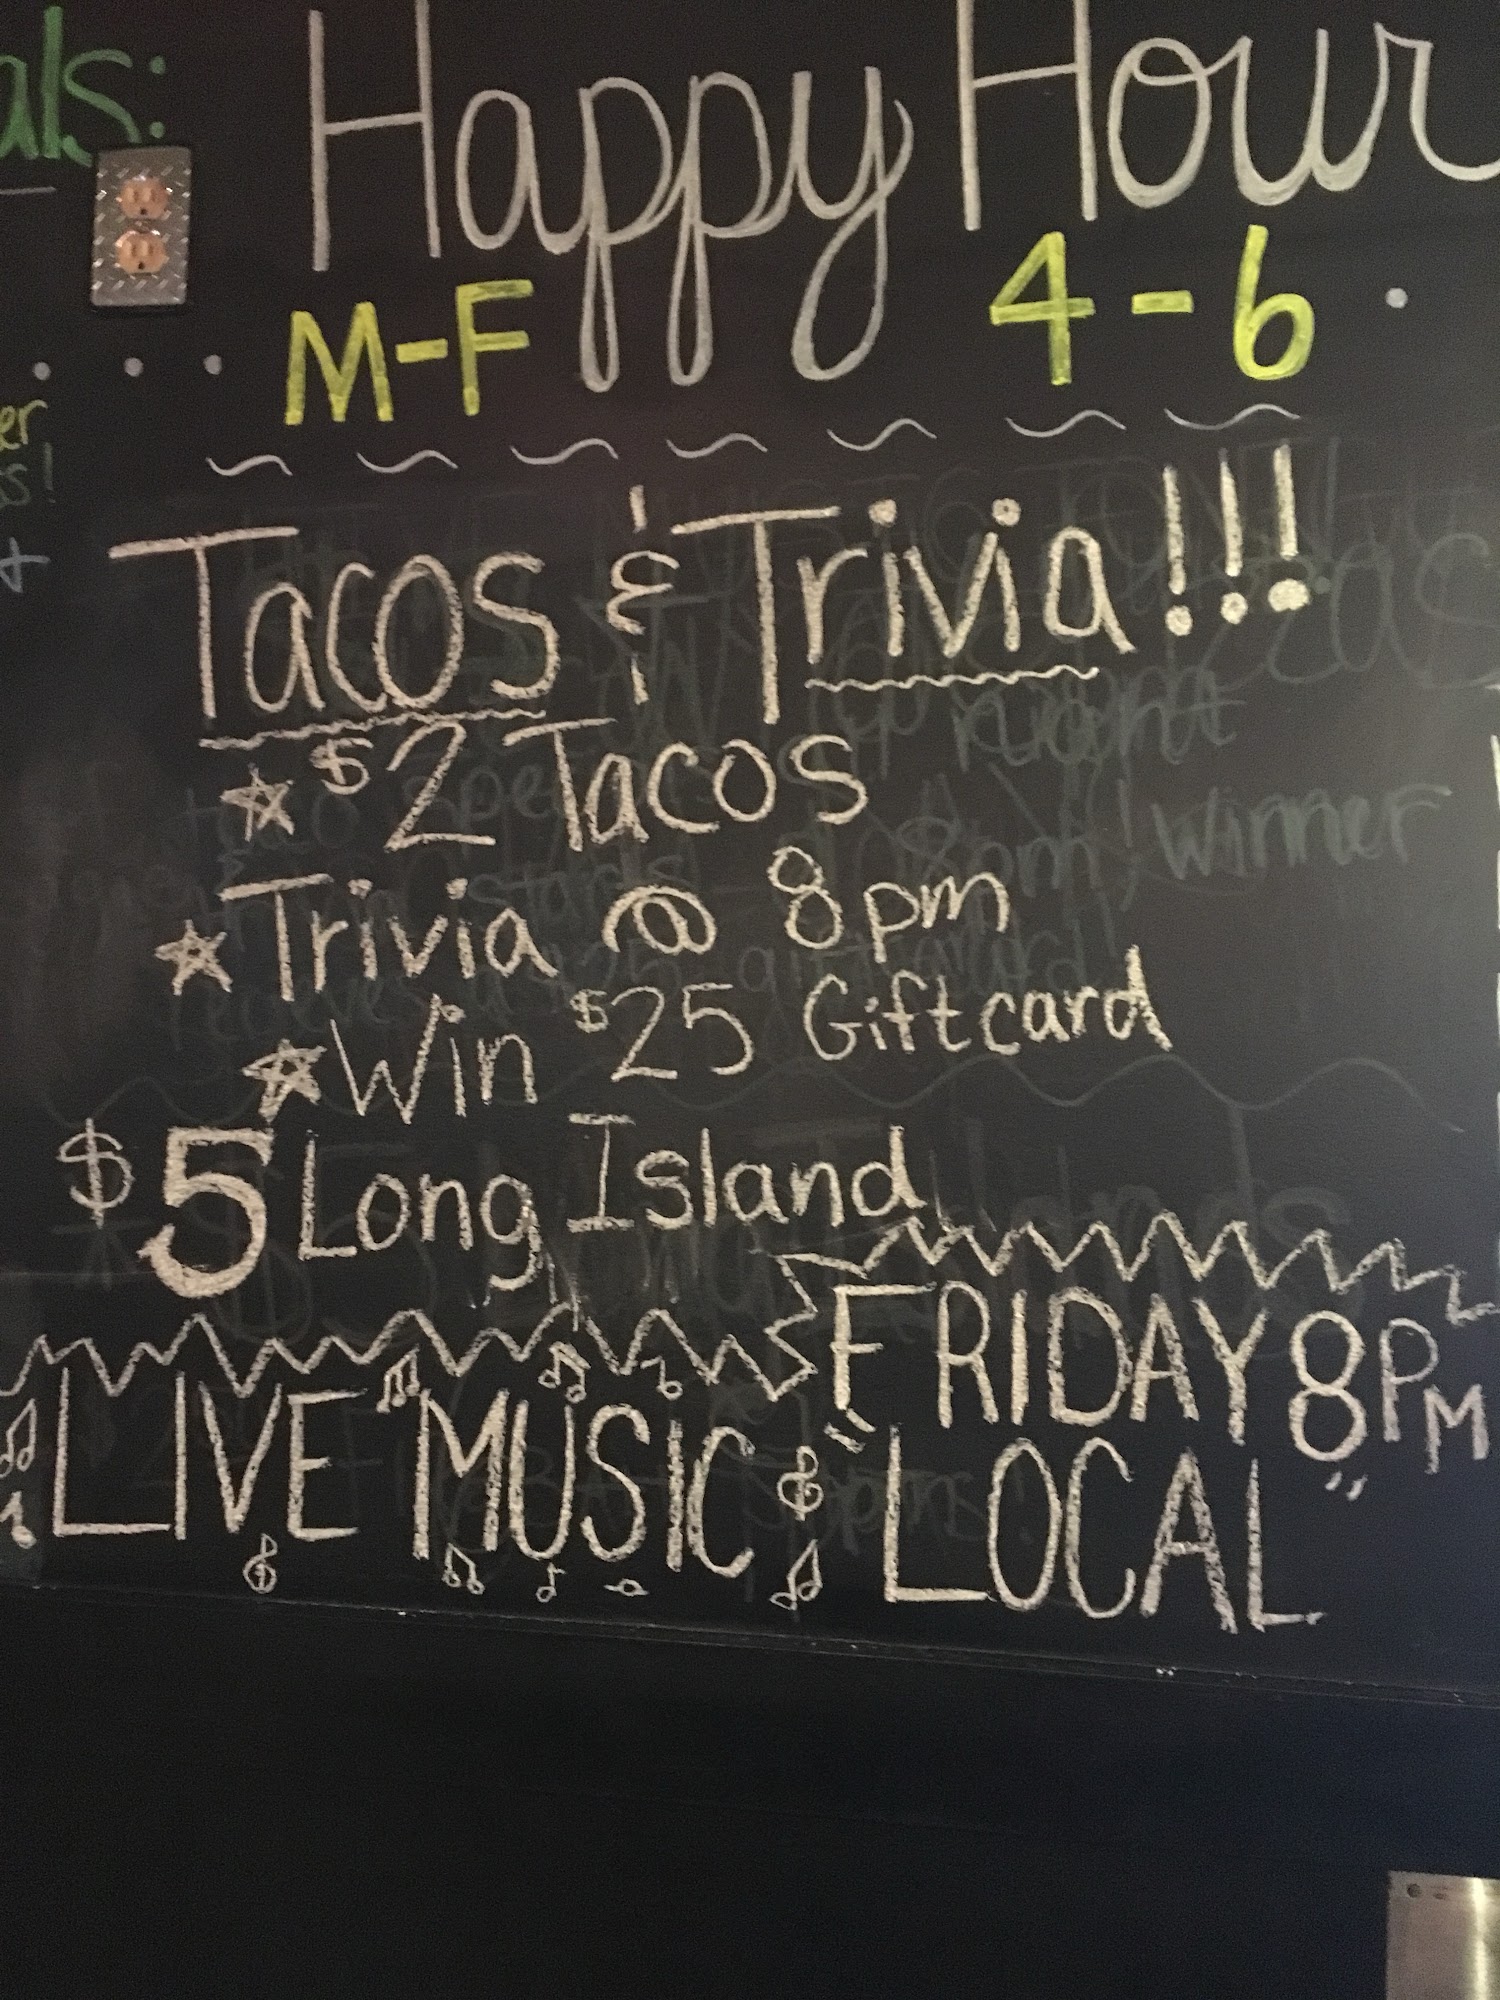 Happy Hour
M-F 4-6
Tacos & Trivia!!!
$2 Tacos
Trivia @ 8pm
Win $25 Giftcard
$5 Long Island
FRIDAY 8PM
LIVE MUSIC "LOCAL"
als:
er
s!
+